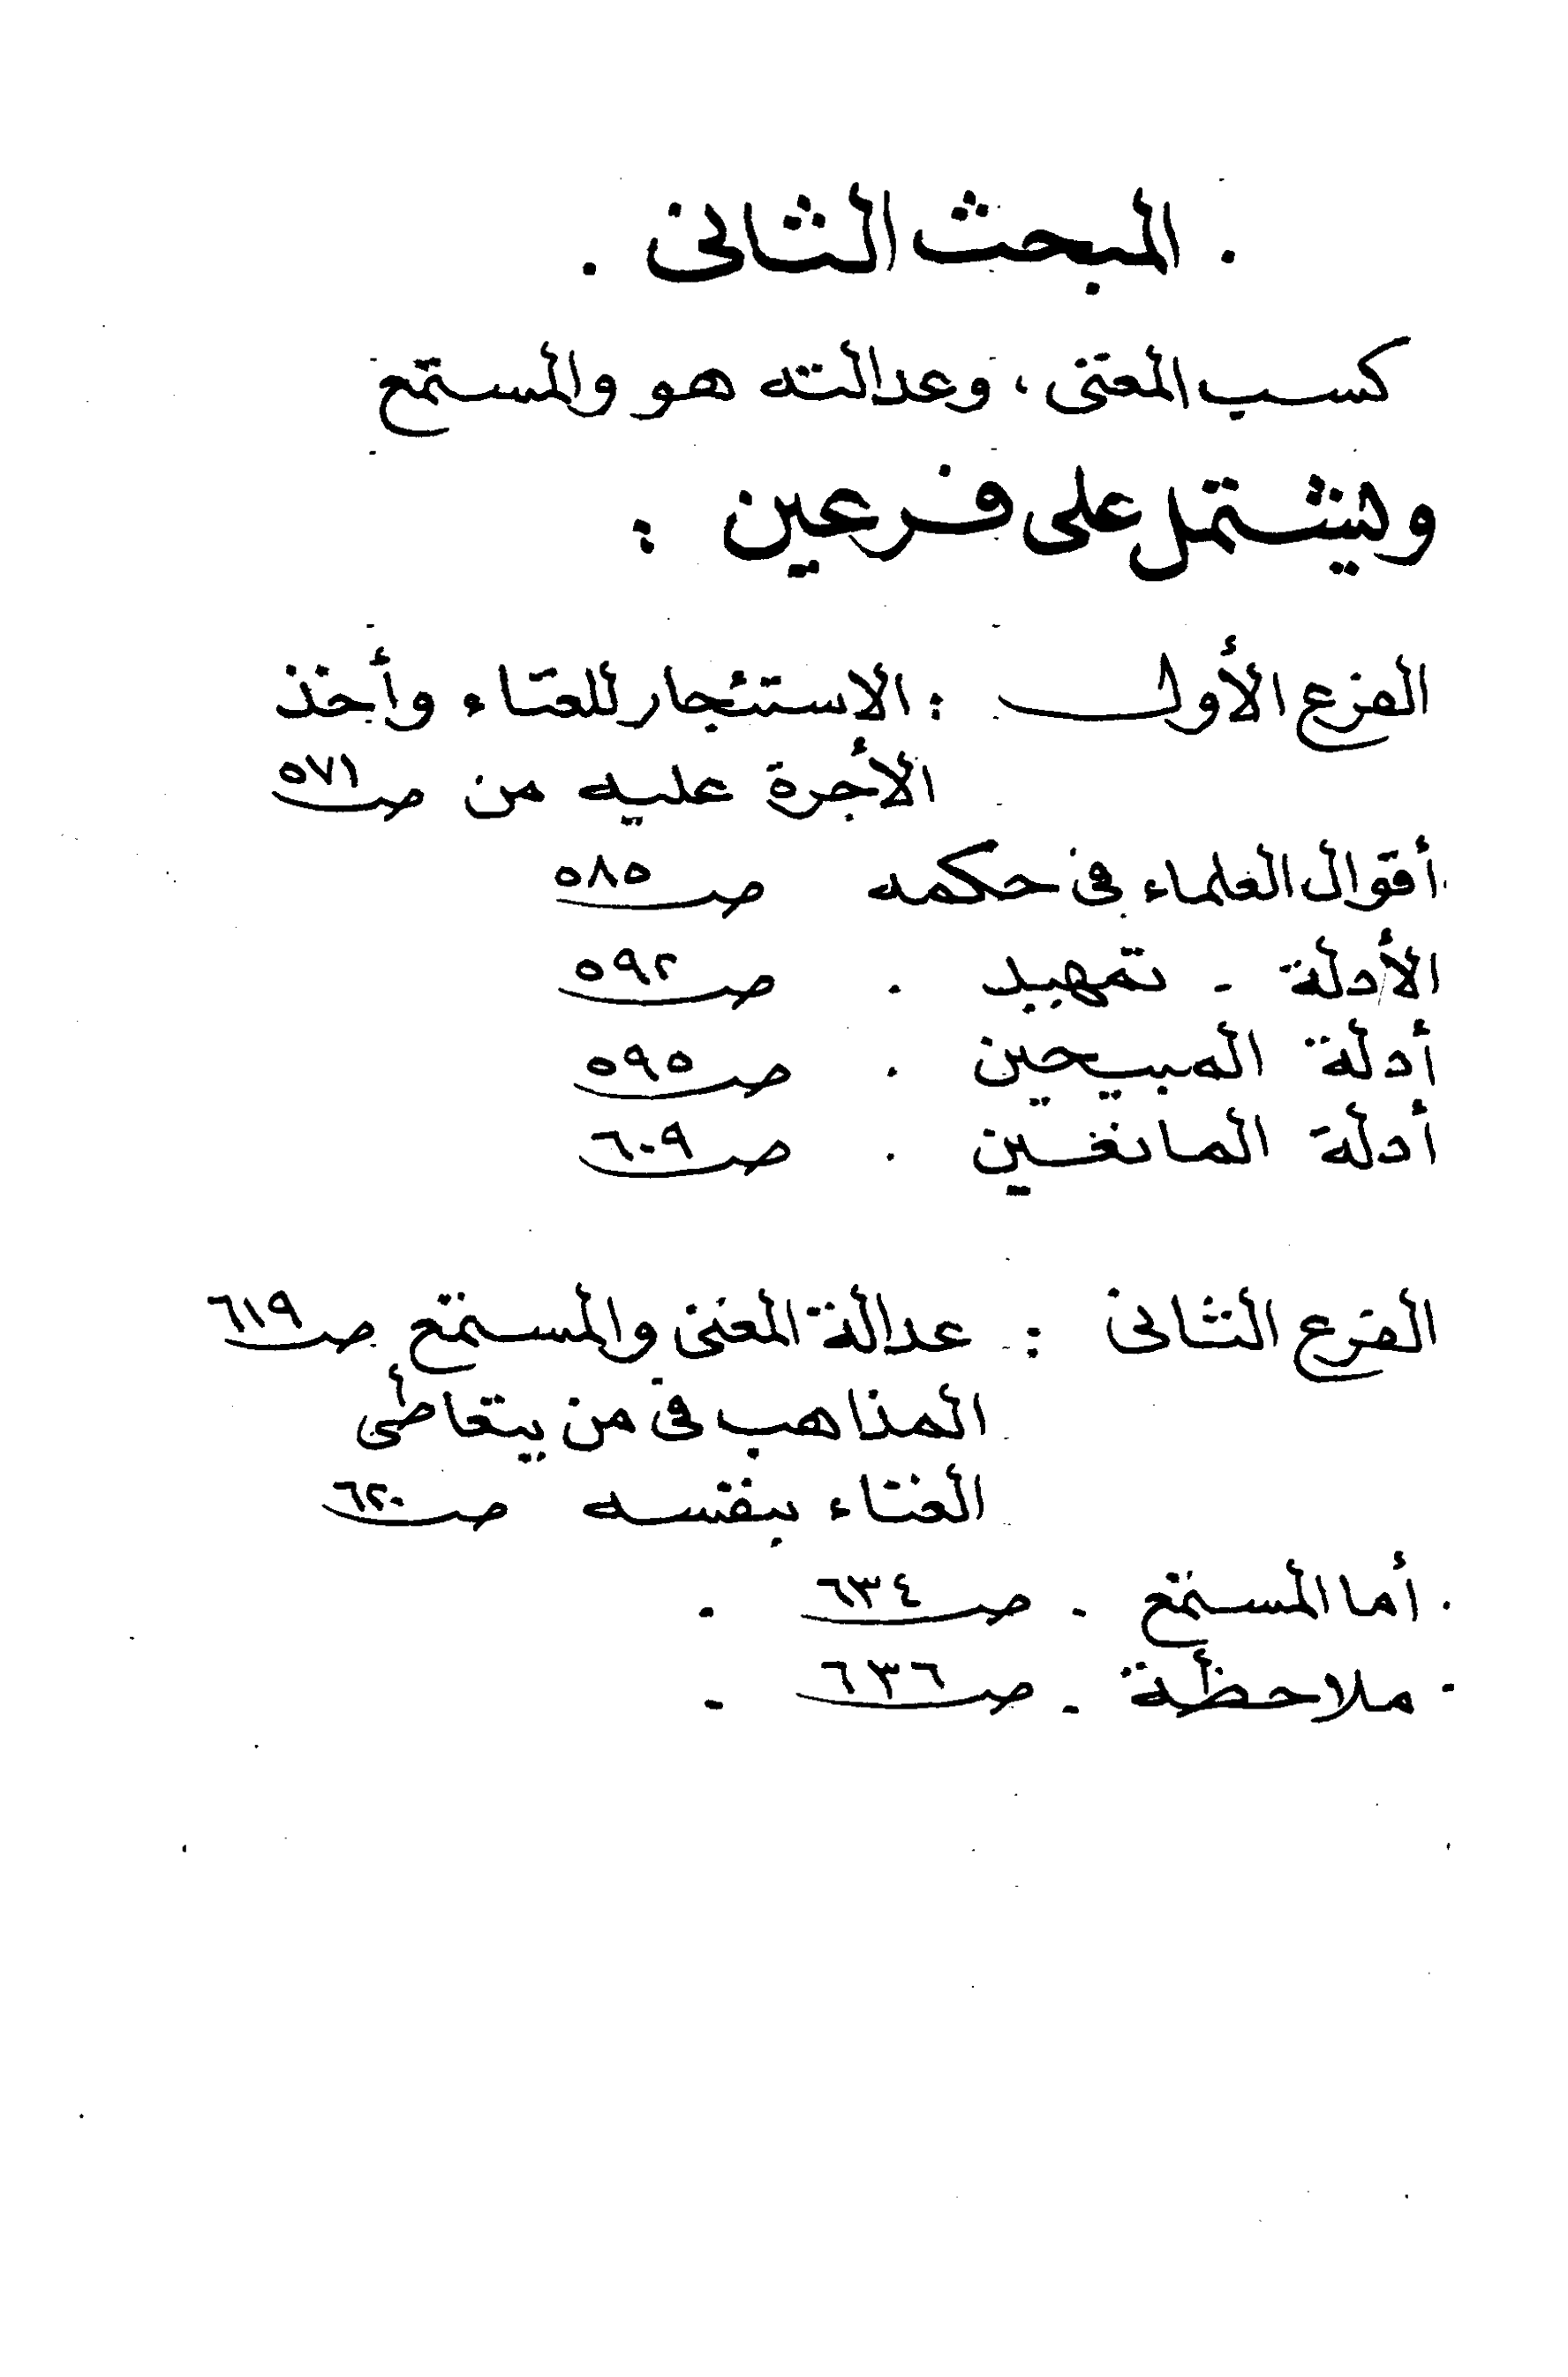 . المبحث الثانى .
كسب المغنى ، وعدالته هو والمستمع
ويشتمل على فرعين :
الفرع الأول : الاستئجار للغناء وأخذ
الأجرة عليه من صـ ٥٧١
أقوال العلماء فى حكمه صـ ٥٨٥
الأدلة - تمهيد . صـ ٥٩٢
أدلة المبيحين . صـ ٥٩٥
أدلة المانعين . صـ ٦٠٩
الفرع الثانى : عدالة المغنى والمستمع صـ ٦١٩
المذاهب فى من يتعاطى
الغناء بنفسه صـ ٦٢٠
. أما المستمع - صـ ٦٣٤ .
. ملاحظة - صـ ٦٣٦ .